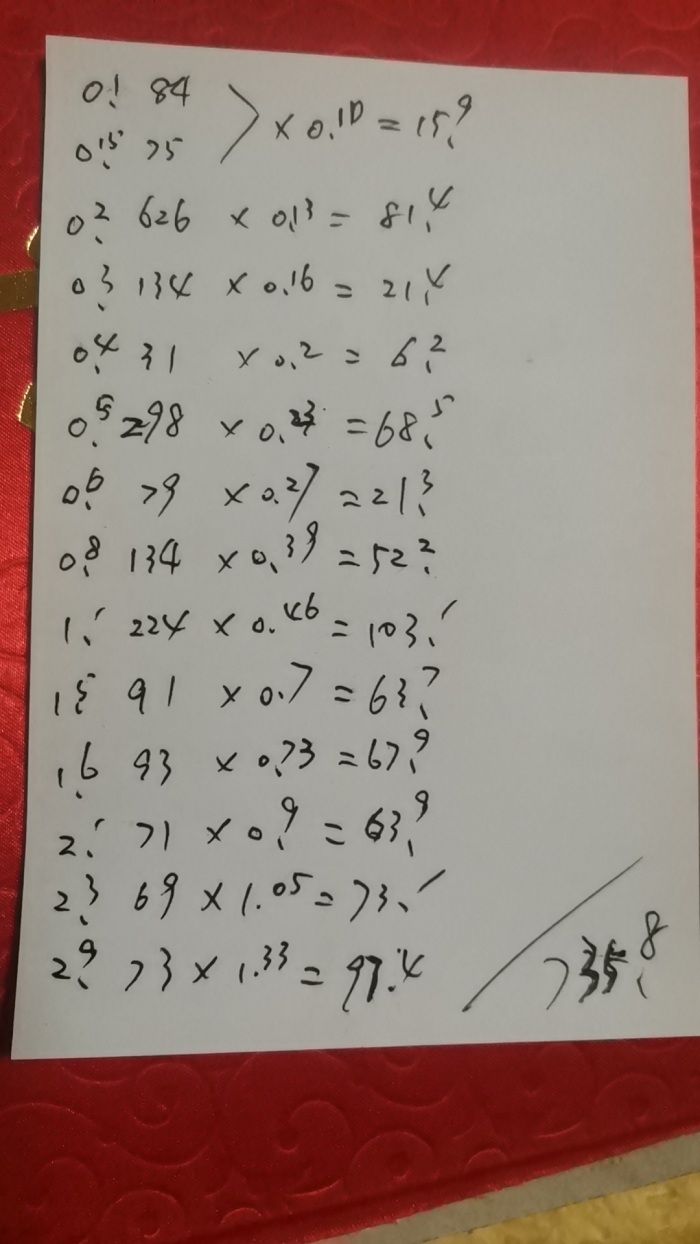 0.1 84
× 0.10 = 15.9
0.15 75
0.2 626 × 0.13 = 81.4
0.3 134 × 0.16 = 21.4
0.4 31 × 0.2 = 6.2
0.5 298 × 0.23 = 68.5
0.6 79 × 0.27 = 21.3
0.8 134 × 0.39 = 52.2
1.1 224 × 0.46 = 103.1
1.5 91 × 0.7 = 63.7
1.6 93 × 0.73 = 67.9
2.1 71 × 0.9 = 63.9
2.3 69 × 1.05 = 73.1
2.9 73 × 1.33 = 97.4
735.8